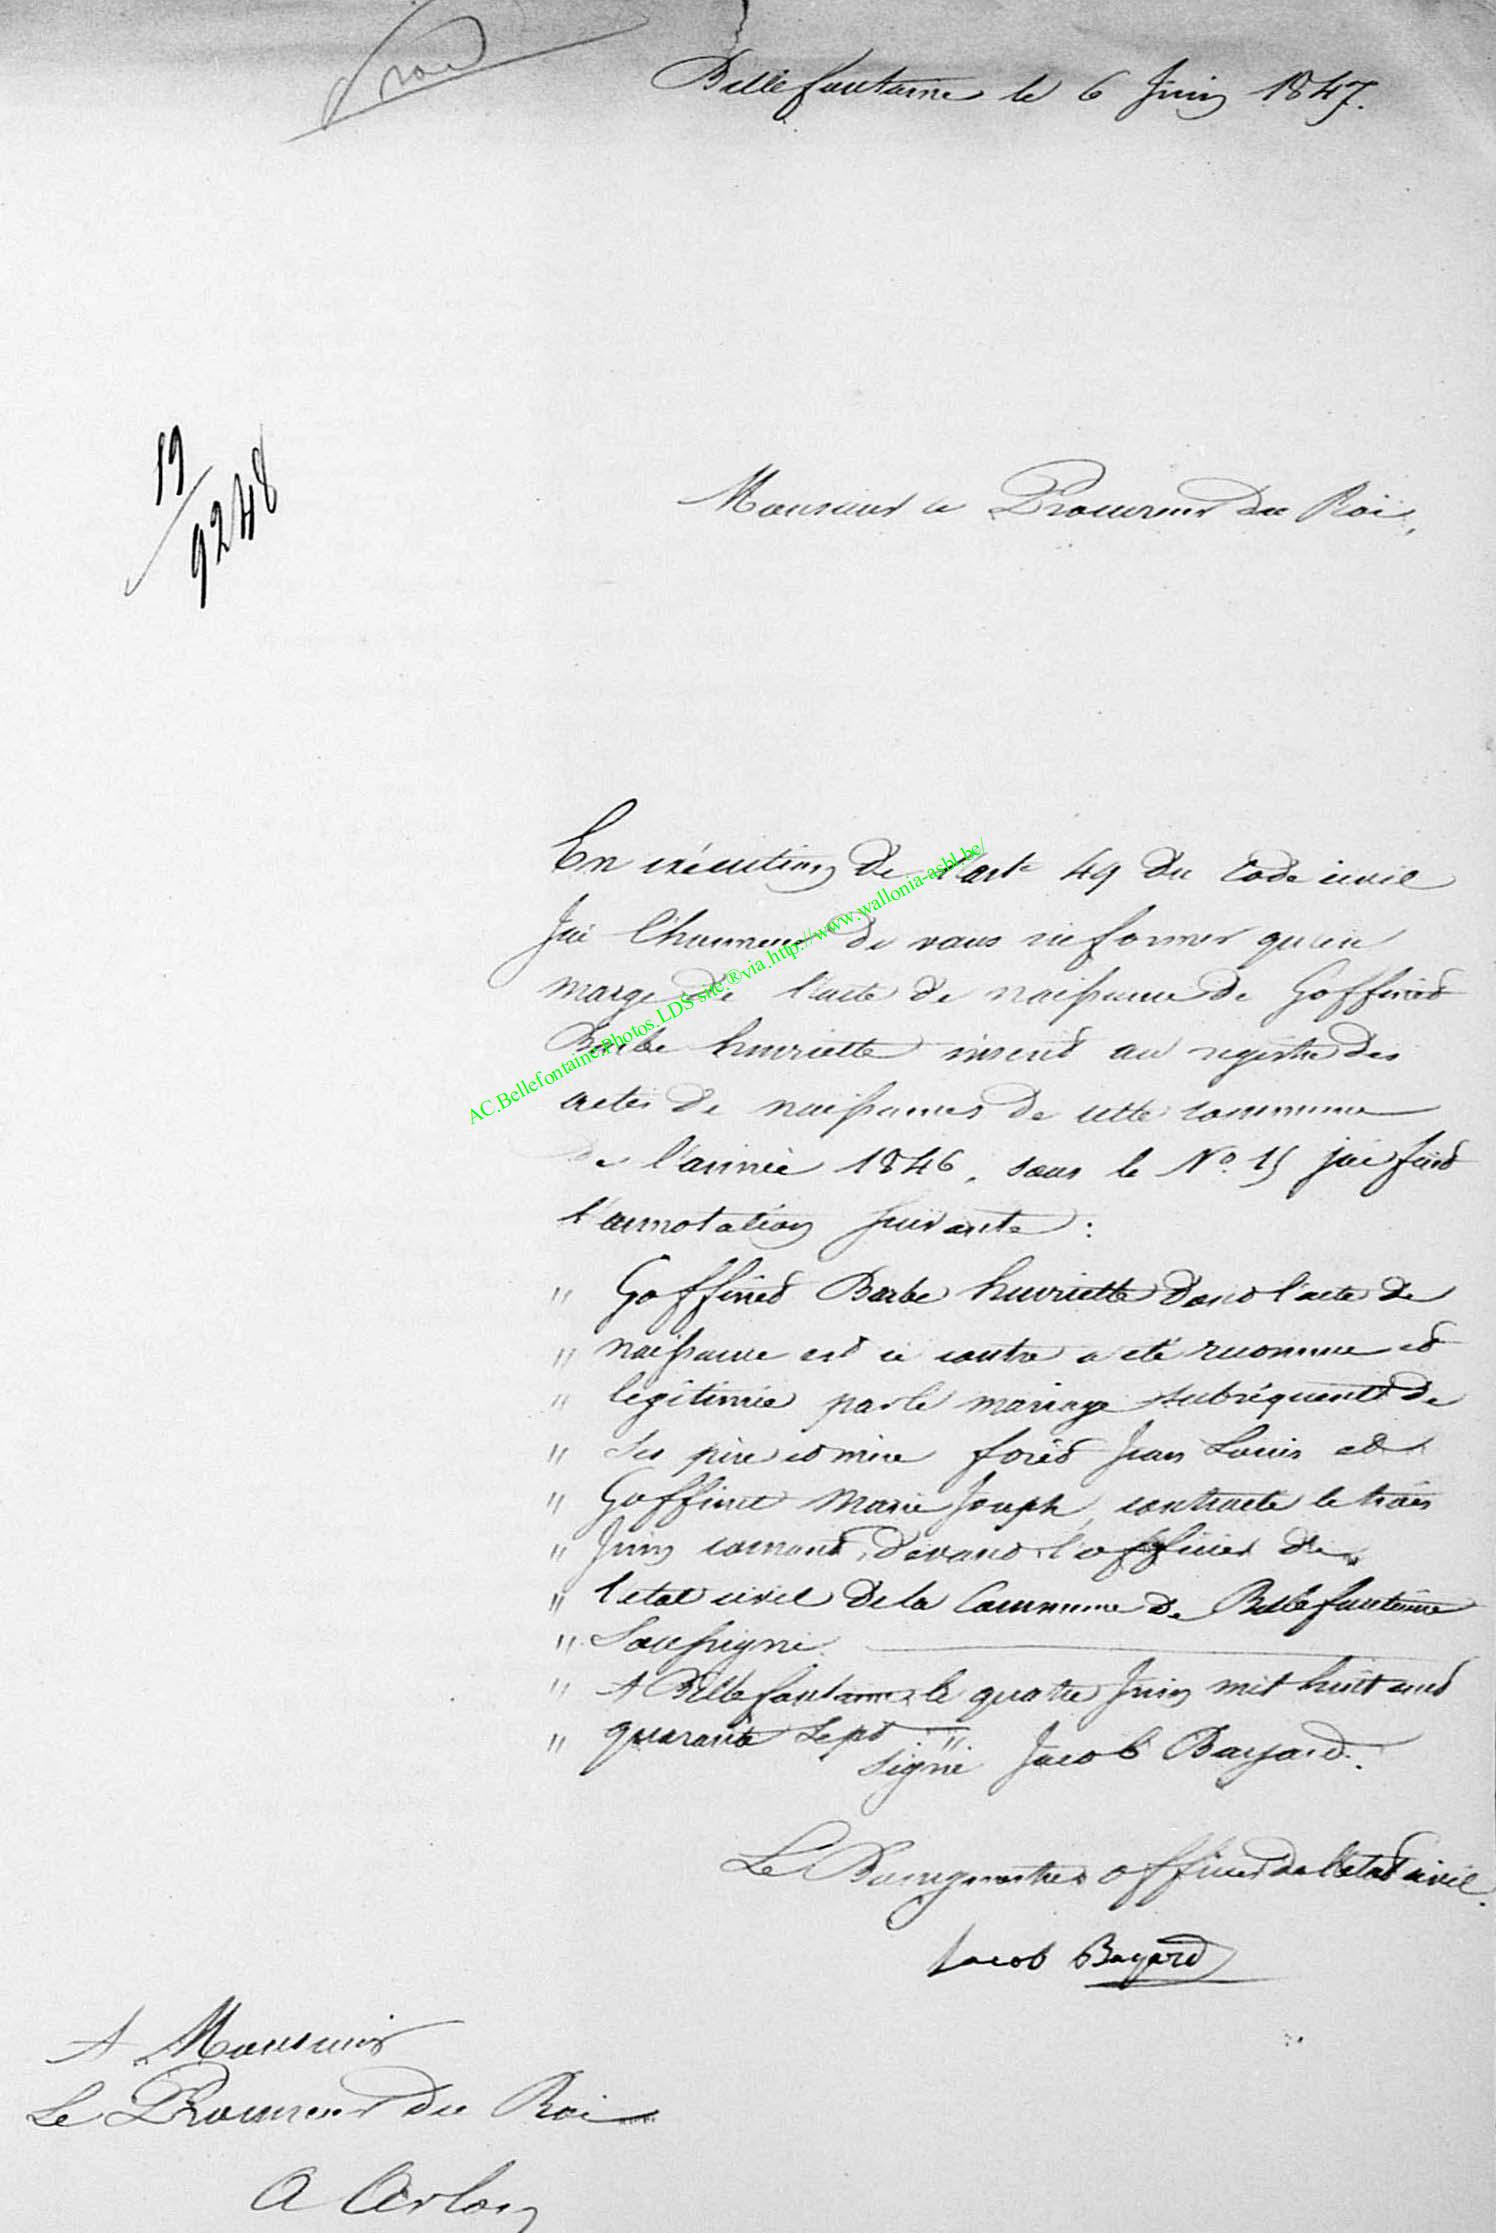 Bellefontaine le 6 Juin 1847.
19
9248
Monsieur le Procureur du Roi,
En exécution de l'arte 49 du Code civil
J'ai l'honneur de vous informer qu'en
marge de l'acte de naissance de Goffinet
Barbe henriette inscrit au registre des
actes de naissances de cette commune
de l'année 1846, sous le No. 15 j'ai fait
l'annotation suivante :
" Goffinet Barbe henriette dont l'acte de
" naissance est ci contre a été reconnue et
" legitimée par le mariage subséquent de
" ses père et mère foret Jean Louis et
" Goffinet Marie Joseph, contracté le trois
" Juin courant, devant l'officier de
" l'état civil de la Commune de Bellefontaine
" Soussigné.
" A Bellefontaine le quatre Juin mil huit cent
" quarante sept "
signé Jacob Bayard.
Le Bourgmestre officier de l'état civil.
Jacob Bayard
A Monsieur
Le Procureur du Roi
A Arlon
AC.Bellefontaine.Photos.LDS site.®via.http://www.wallonia-asbl.be/